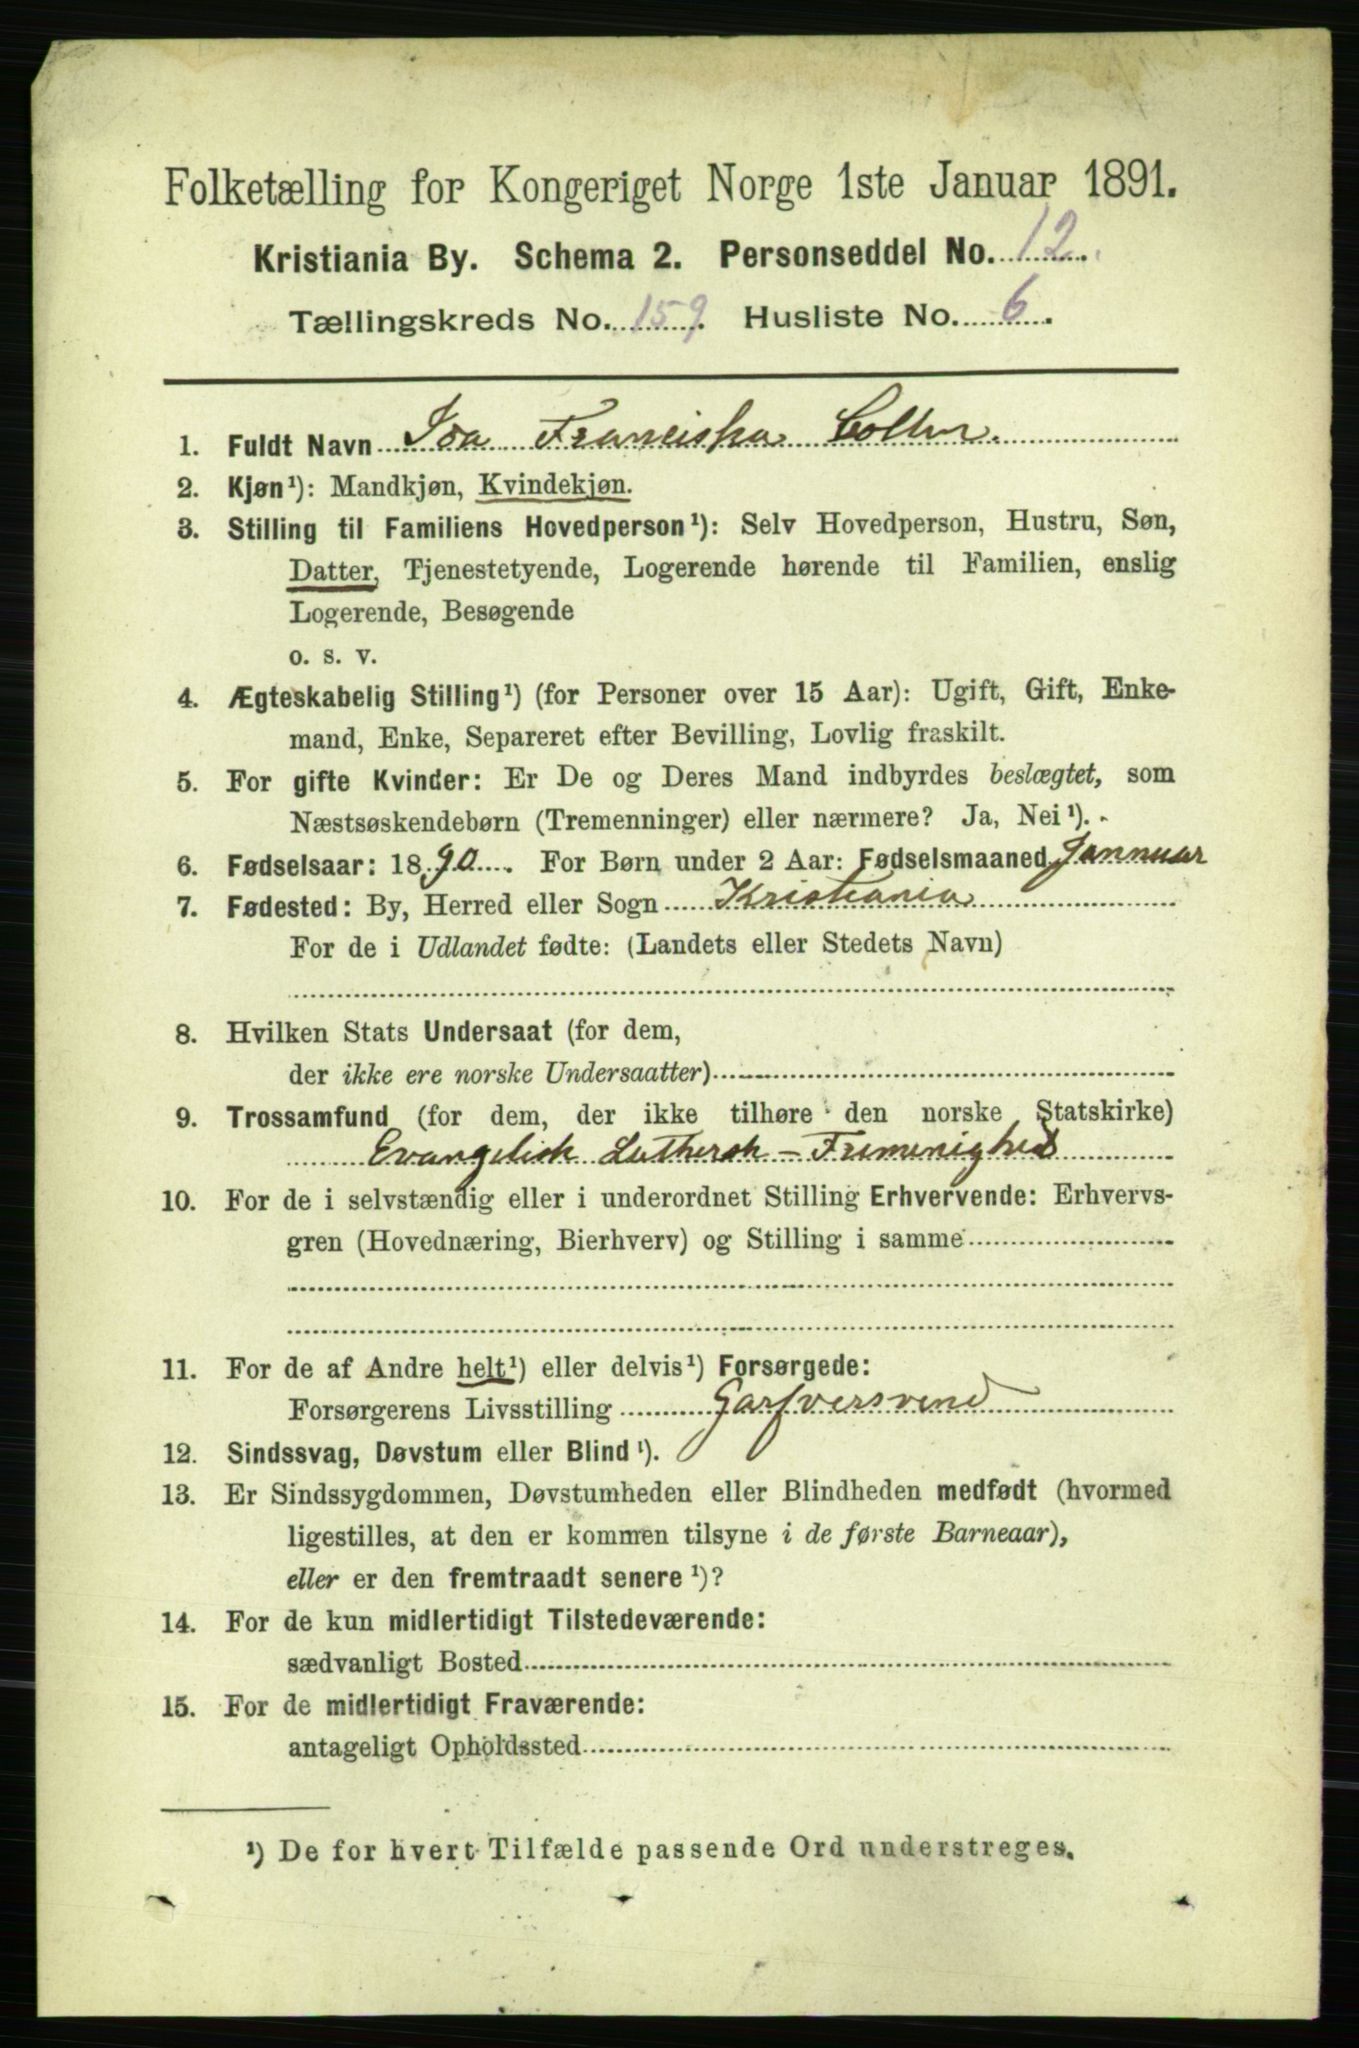 Folketælling for Kongeriget Norge 1ste Januar 1891.
Kristiania By. Schema 2. Personseddel No. 12.
Tællingskreds No. 159. Husliste No. 6.
1. Fuldt Navn Ida Franciska
2. Kjøn¹): Mandkjøn, Kvindekjøn.
3. Stilling til Familiens Hovedperson¹): Selv Hovedperson, Hustru, Søn,
Datter, Tjenestetyende, Logerende hørende til Familien, enslig
Logerende, Besøgende
o. s. v.
4. Ægteskabelig Stilling¹) (for Personer over 15 Aar): Ugift, Gift, Enke-
mand, Enke, Separeret efter Bevilling, Lovlig fraskilt.
5. For gifte Kvinder: Er De og Deres Mand indbyrdes beslægtet, som
Næstsøskendebørn (Tremenninger) eller nærmere? Ja, Nei¹).
6. Fødselsaar: 1890. For Børn under 2 Aar: Fødselsmaaned Jannuar
7. Fødested: By, Herred eller Sogn Kristiania
For de i Udlandet fødte: (Landets eller Stedets Navn)
8. Hvilken Stats Undersaat (for dem,
der ikke ere norske Undersaatter)
9. Trossamfund (for dem, der ikke tilhøre den norske Statskirke)
Evangelisk Luthersk - Frimenighed
10. For de i selvstændig eller i underordnet Stilling Erhvervende: Erhvervs-
gren (Hovednæring, Bierhverv) og Stilling i samme
11. For de af Andre helt¹) eller delvis¹) Forsørgede:
Forsørgerens Livsstilling Garfversvend
12. Sindssvag, Døvstum eller Blind¹).
13. Er Sindssygdommen, Døvstumheden eller Blindheden medfødt (hvormed
ligestilles, at den er kommen tilsyne i de første Barneaar),
eller er den fremtraadt senere¹)?
14. For de kun midlertidigt Tilstedeværende:
sædvanligt Bosted
15. For de midlertidigt Fraværende:
antageligt Opholdssted
¹) De for hvert Tilfælde passende Ord understreges.